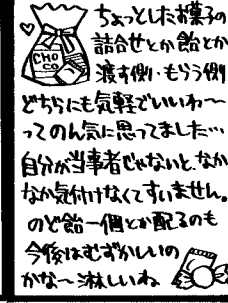 ちょっとしたお菓子の
詰合せとか飴とか
渡す側・もらう側
どちらにも気軽でいいね〜
ってのん気に思ってました…
自分が当事者じゃないと、なか
なか気付けなくてすいません。
のど飴一個とか配るのも
今後はむずかしいの
かな〜淋しいね
CHO
CO